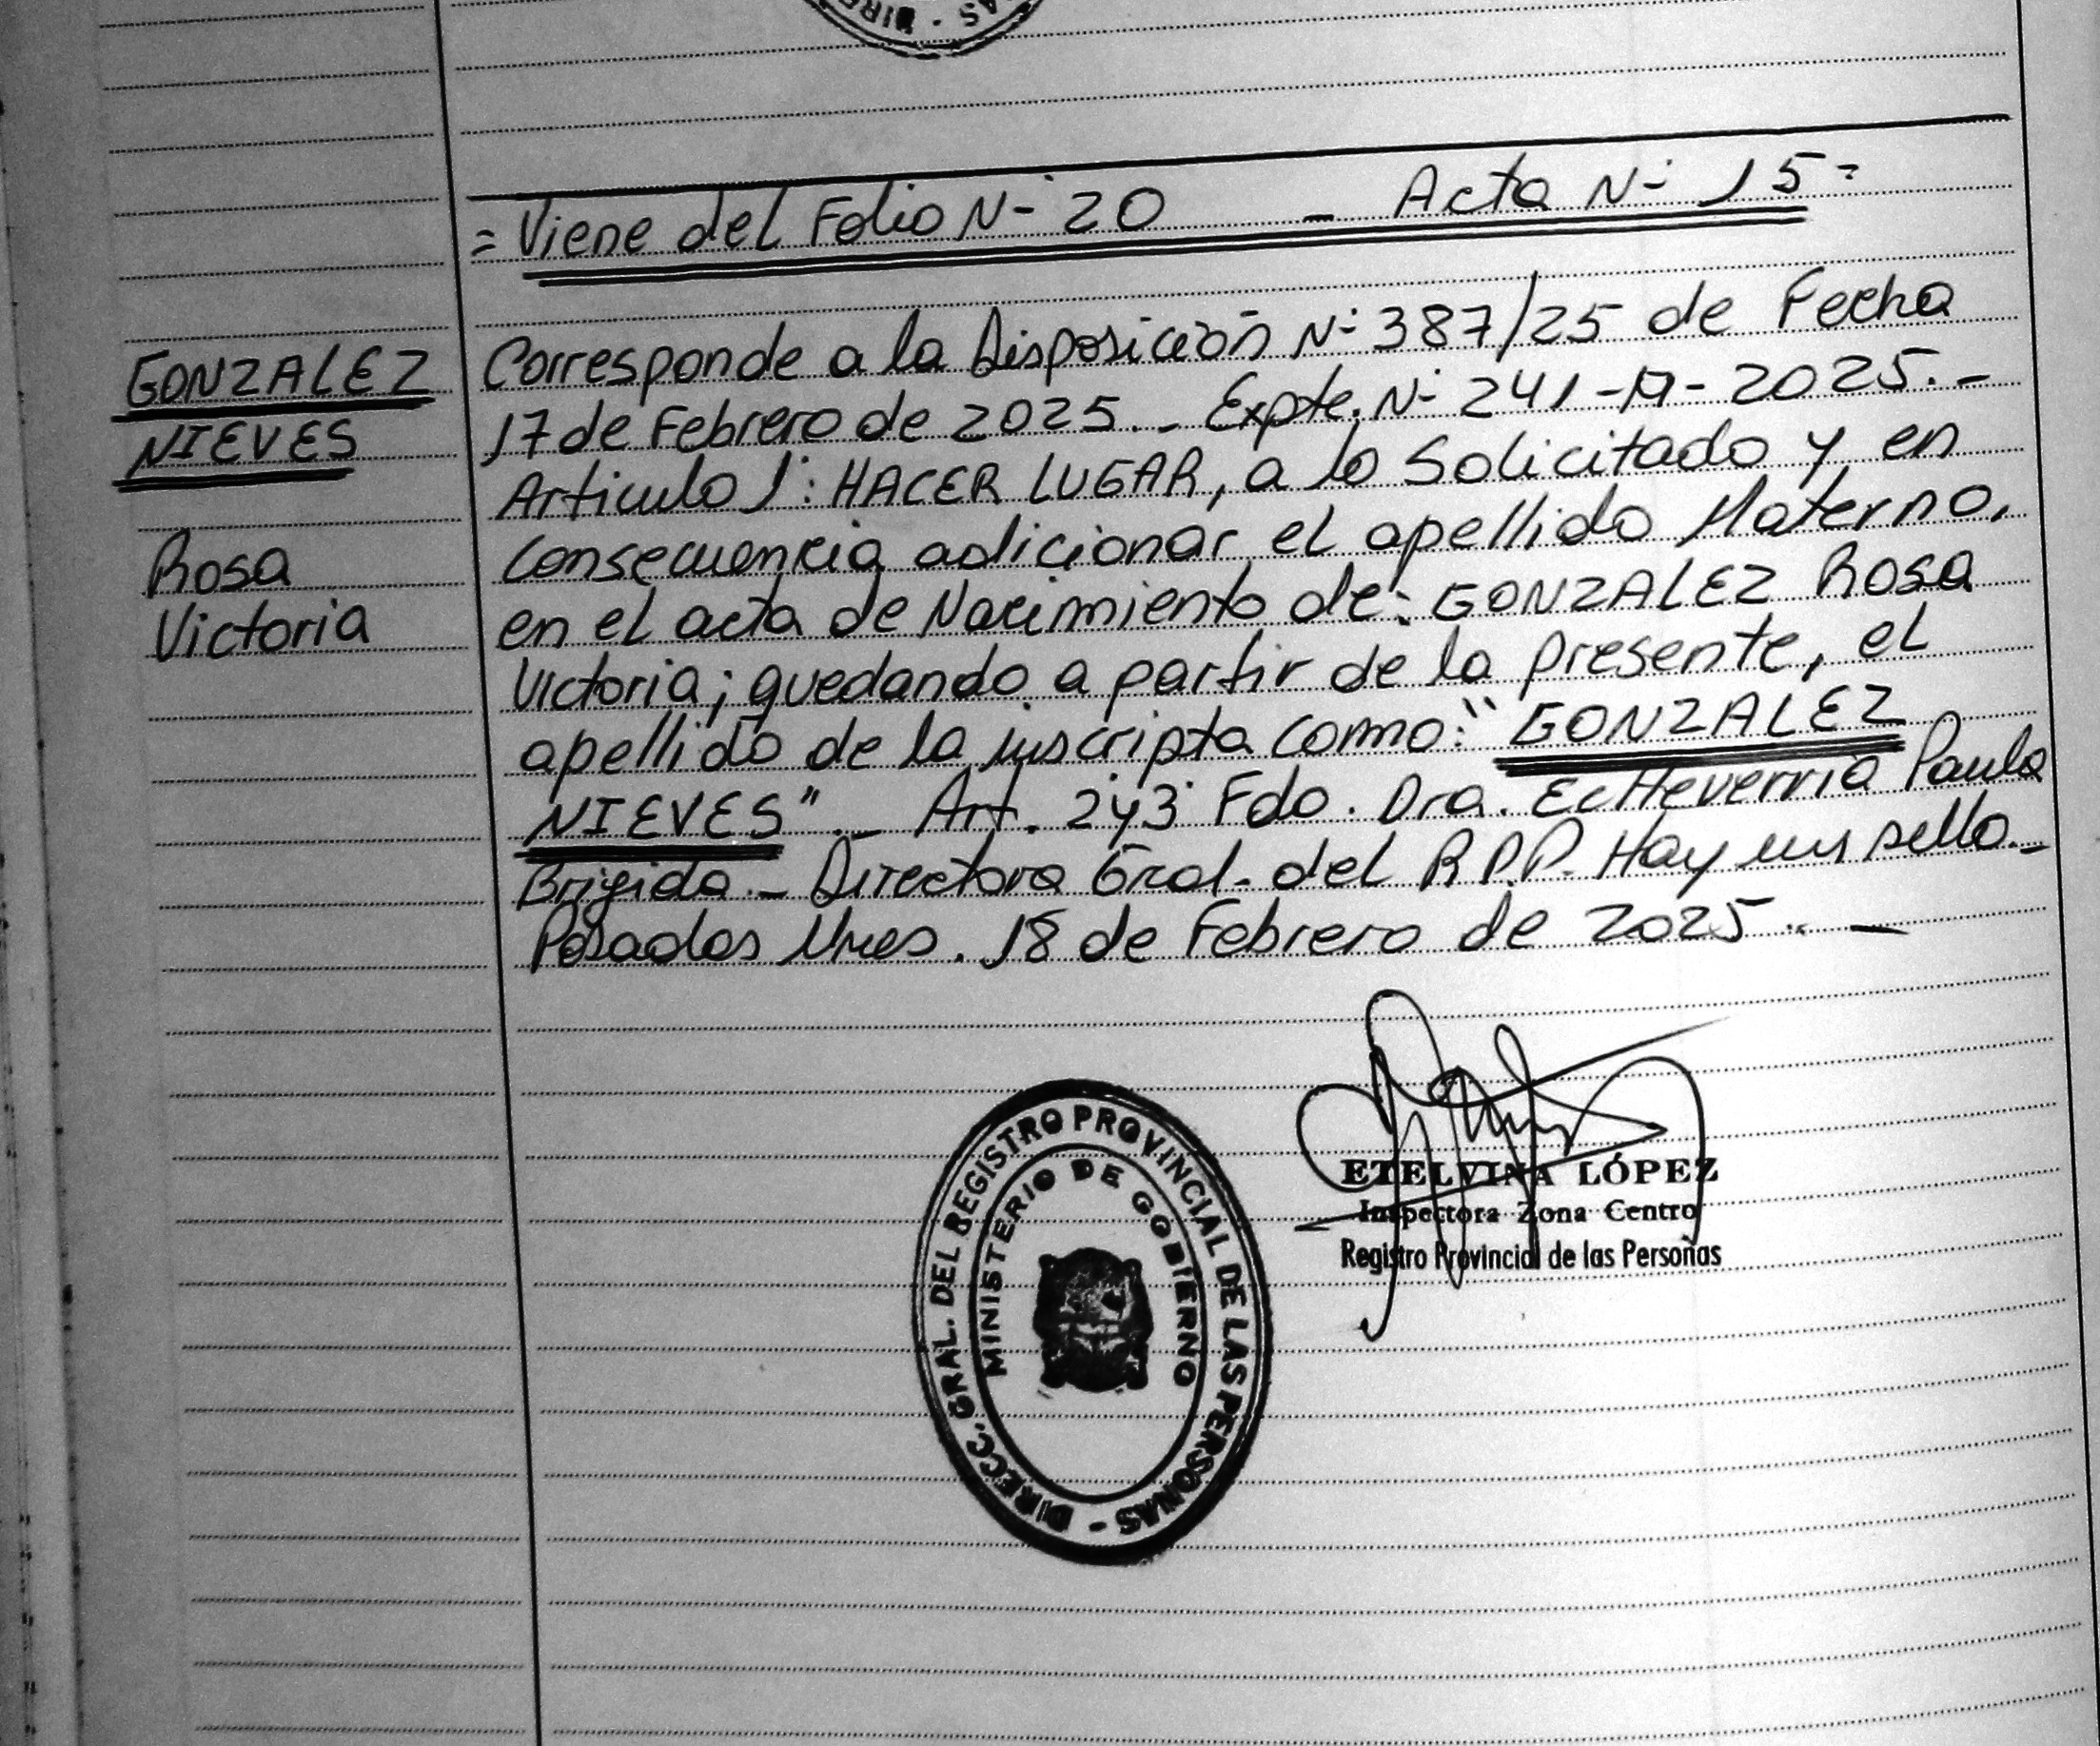 = Viene del Folio N- 20 - Acta N- 15 =
GONZALEZ
NIEVES
Rosa
Victoria
Corresponde a la Disposición N- 387/25 de Fecha
17 de Febrero de 2025.- Expte. N- 241-M-2025.-
Articulo 1°: HACER LUGAR, a lo Solicitado y en
Consecuencia adicionar el apellido Materno,
en el acta de Nacimiento de: GONZALEZ Rosa
Victoria; quedando a partir de la presente, el
apellido de la inscripta como: "GONZALEZ
NIEVES".- Art. 243° Fdo. Dra. EcHeverria Paula
Brigida.- Directora Gral. del R.P.P. Hay un sello.-
Posadas Mnes. 18 de Febrero de 2025.-
ETELVINA LÓPEZ
Inspectora Zona Centro
Registro Provincial de las Personas
DIRECC. GRAL. DEL REGISTRO PROVINCIAL DE LAS PERSONAS -
MINISTERIO DE GOBIERNO